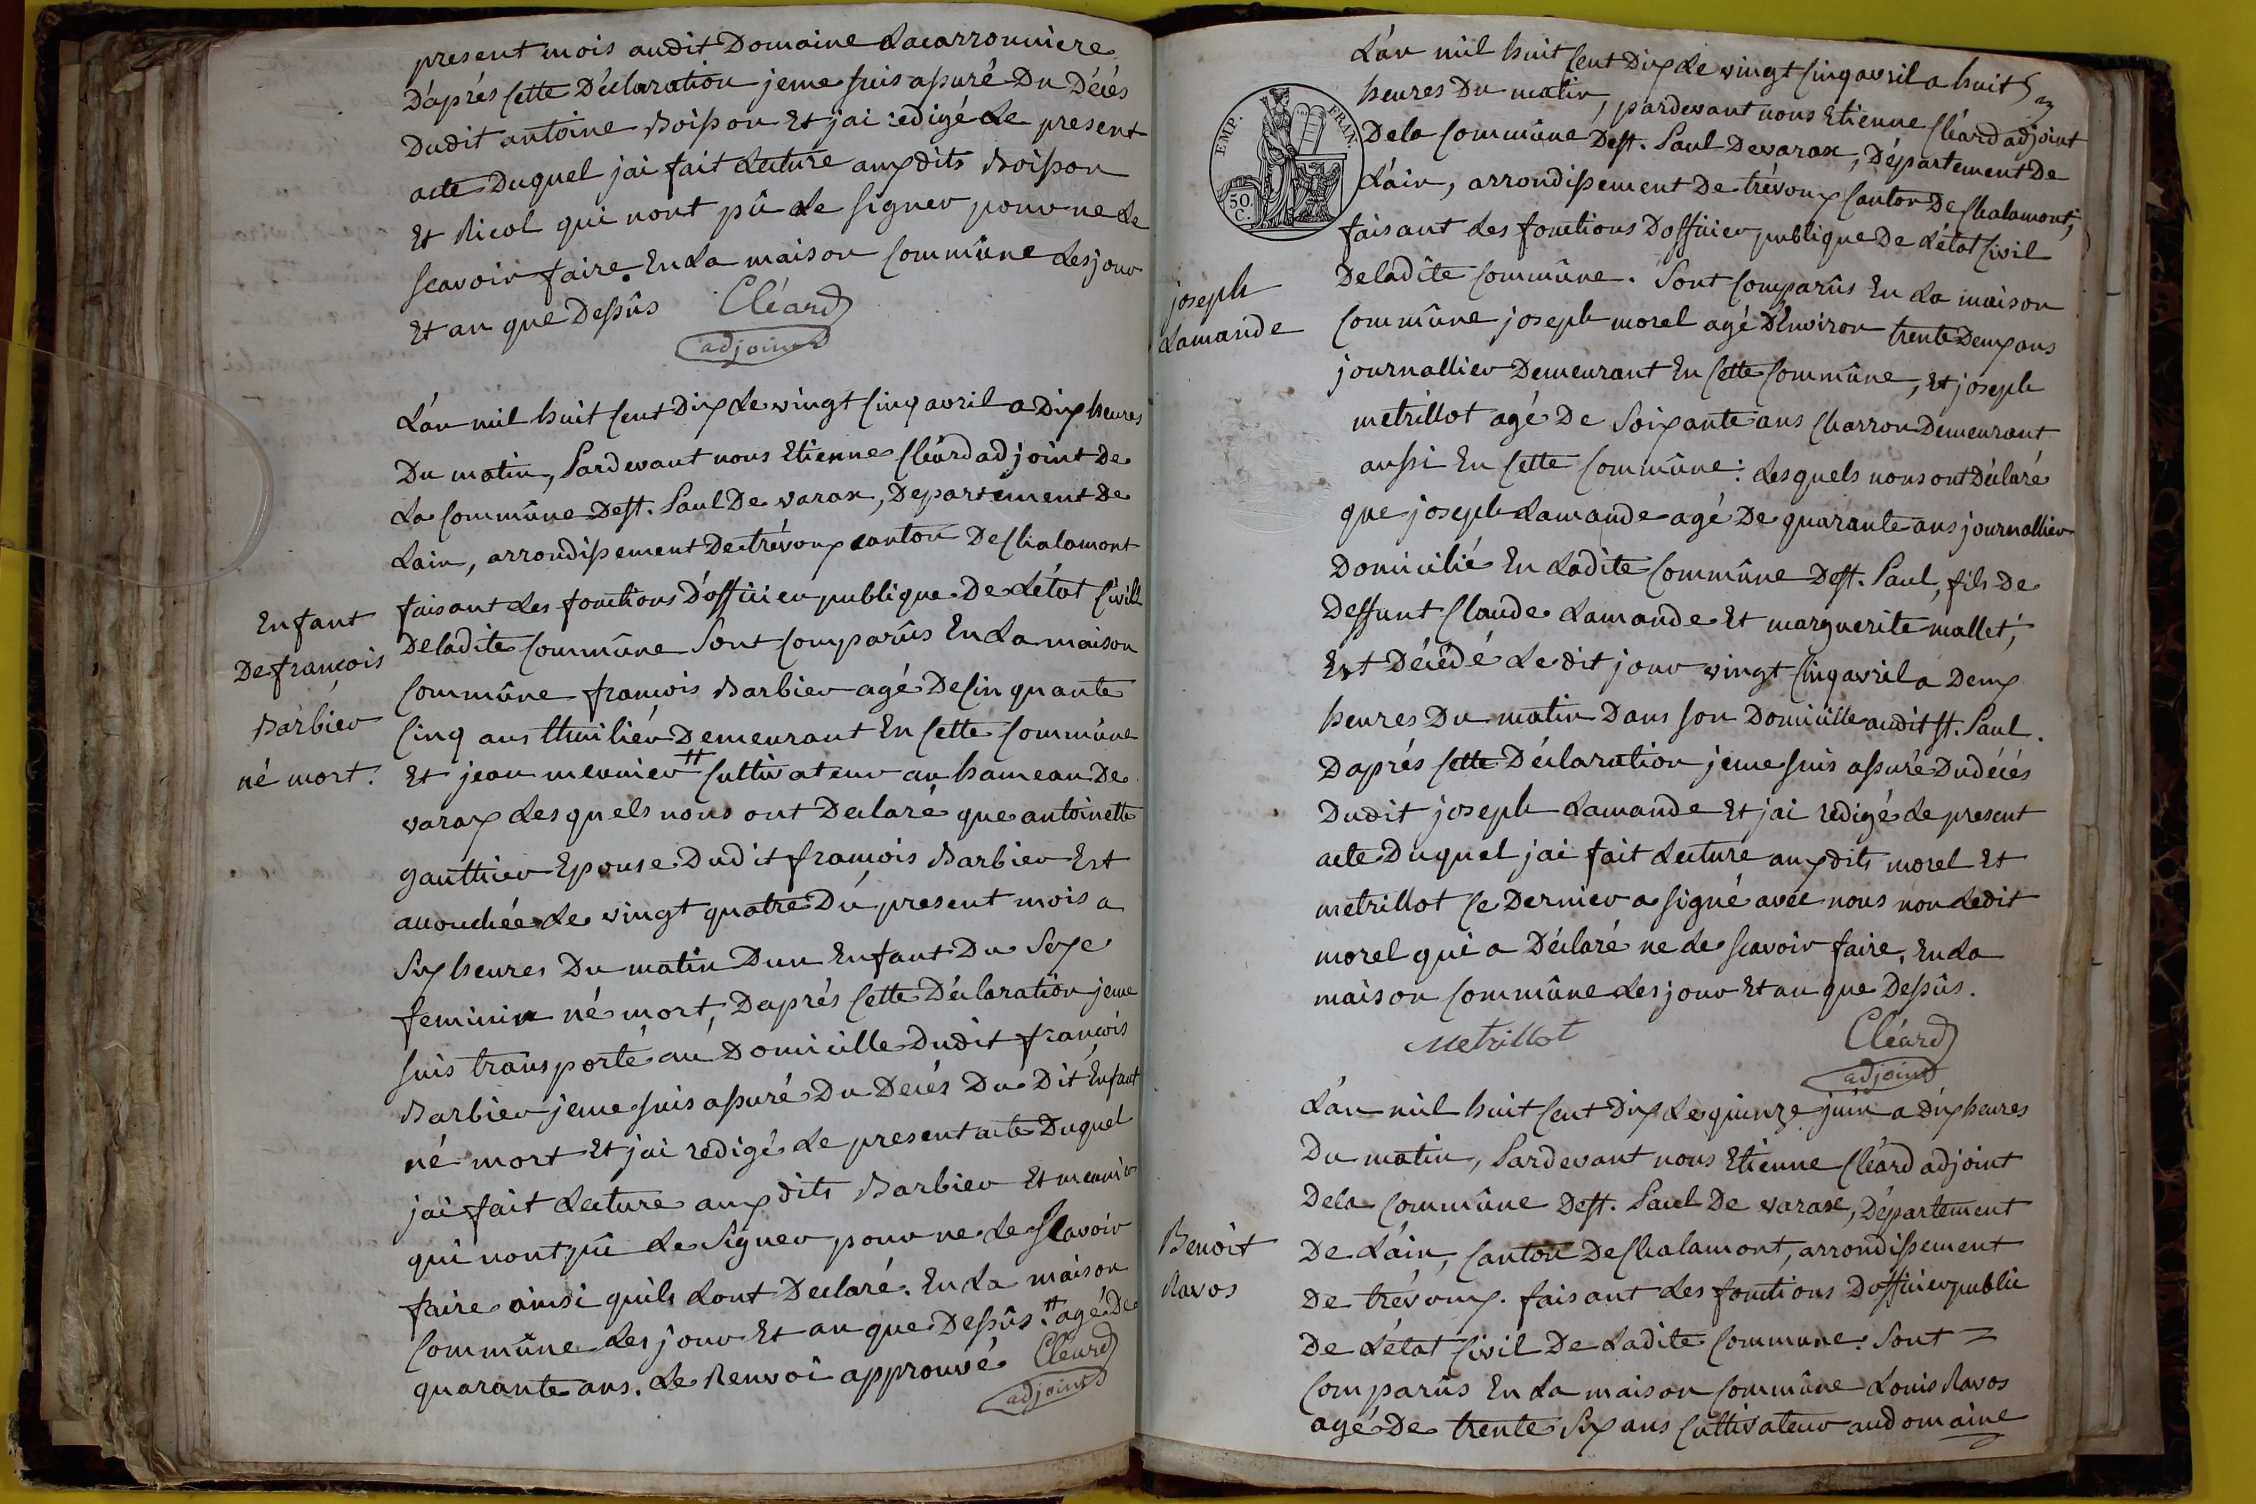 present mois audit Domaine Lacarronniere
D'aprés Cette Déclaration jeme suis assuré Du Décés
Dudit antoine Boisson Et jai redigé Le present
acte Duquel jai fait Lecture auxdits Boisson
Et Nicol qui nont pû Le signer pour ne Le
scavoir faire. En La maison Commûne Les jour
Et an que Dessûs Cléard
adjoint
L'an mil huit Cent Dix Le vingt Cinq avril a Dix heures
Du matin, Pardevant nous Etienne Cléard adjoint De
La Commûne De st. Paul De varax, Departement De
Lain, arrondissement De trévoux canton De Chalamont
faisant Les fonctions D'officier publique De L'état Civill
De ladite Commûne Sont Comparûs En La maison
Commûne françois Barbier agé De Cinquante
Cinq ans thuiliér Demeurant En Cette Commûne
Et jean meunier # Cultivateur au hameau De
varax Lesquels nous ont Declaré que antoinette
gauthier Epouse Dudit françois Barbier Est
accouchée Le vingt quatre Du present mois a
Six heures Du matin Dun Enfant Du Sexe
feminin né mort, Daprés Cette Déclaration jeme
suis transporté au Domicille Dudit françois
Barbier jeme suis assuré Du Decés Du Dit Enfant
né mort Et jai redigé Le present acte Duquel
jai fait Lecture auxdits Barbier Et meunier
qui nont pû Le Signer pour ne Le Scavoir
faire ainsi quils Lont Declaré. En La maison
Commûne Les jour Et an que Dessûs. # agé De
quarante ans. Le Renvoi approuvé Cléard
adjoint
Enfant
De françois
Barbier
né mort.
EMP. FRAN.
50.
C.
L'an mil huit Cent Dix Le vingt Cinq avril a huit
heures Du matin, pardevant nous Etienne Cléard adjoint
De la Commûne De st. Paul De varax, Département De
L'ain, arrondissement De trévoux Canton De Chalamont,
faisant Les fonctions Dofficier publique De L'état Civil
De ladite Commûne. Sont Comparûs En La maison
Commûne joseph morel agé D'Environ trente Deux ans
journallier Demeurant En Cette Commûne, Et joseph
metrillot agé De Soixante ans Charron Demeurant
aussi En Cette Commûne: Lesquels nous ont Déclaré
que joseph Lamande agé De quarante ans journallier
Domicilié En Ladite Commûne De st. Paul, fils De
Deffunt Claude Lamande Et marguerite mallet,
Est Décédé Le dit jour vingt Cinq avril a Deux
heures Du matin Dans son Domicille audit st. Paul.
Daprés Cette Déclaration jeme suis assuré Du décés
Dudit joseph Lamande Et jai redigé Le present
acte Duquel jai fait Lecture auxdits morel Et
metrillot Ce Dernier a signé avec nous non Ledit
morel qui a Déclaré ne Le scavoir faire, En La
maison Commûne Les jour Et an que Dessûs.
Metrillot Cléard
adjoint
joseph
Lamande
L'an mil huit Cent Dix Le quinze juin a dix heures
Du matin, Pardevant nous Etienne Cléard adjoint
De la Commûne De st. Paul De varax, Département
De L'ain, Canton De Chalamont, arrondissement
De trévoux. faisant Les fonctions D'officier public
De L'état Civil De Ladite Commune. Sont =
Comparûs En La maison Commûne Louis Ravos
agé De trente Six ans Cultivateur au domaine
Benoit
Ravos